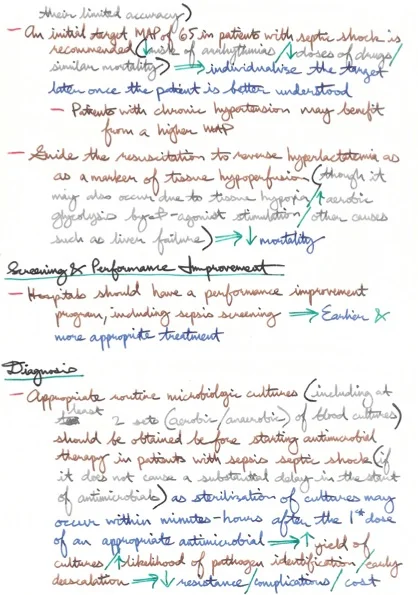 their limited accuracy)
- An initial target MAP of 65 in patients with septic shock is
recommended (↓ risk of arrhythmias/↓ doses of drugs/
similar mortality) ⇒ individualise the target
later once the patient is better understood
- Patients with chronic hypertension may benefit
from a higher MAP
- Guide the resuscitation to reverse hyperlactatemia as
as a marker of tissue hypoperfusion (though it
may also occur due to tissue hypoxia/↑ aerobic
glycolysis by β-agonist stimulation/other causes
such as liver failure) ⇒ ↓ mortality
Screening & Performance Improvement
- Hospitals should have a performance improvement
program, including sepsis screening ⇒ Earlier &
more appropriate treatment
Diagnosis
- Appropriate routine microbiologic cultures (including at
least 2 sets (aerobic/anaerobic) of blood cultures)
should be obtained before starting antimicrobial
therapy in patients with sepsis septic shock (if
it does not cause a substantial delay in the start
of antimicrobials) as sterilisation of cultures may
occur within minutes-hours after the 1st dose
of an appropriate antimicrobial ⇒ ↑ yield of
cultures/↑ likelihood of pathogen identification/early
deescalation ⇒ ↓ resistance/complications/cost